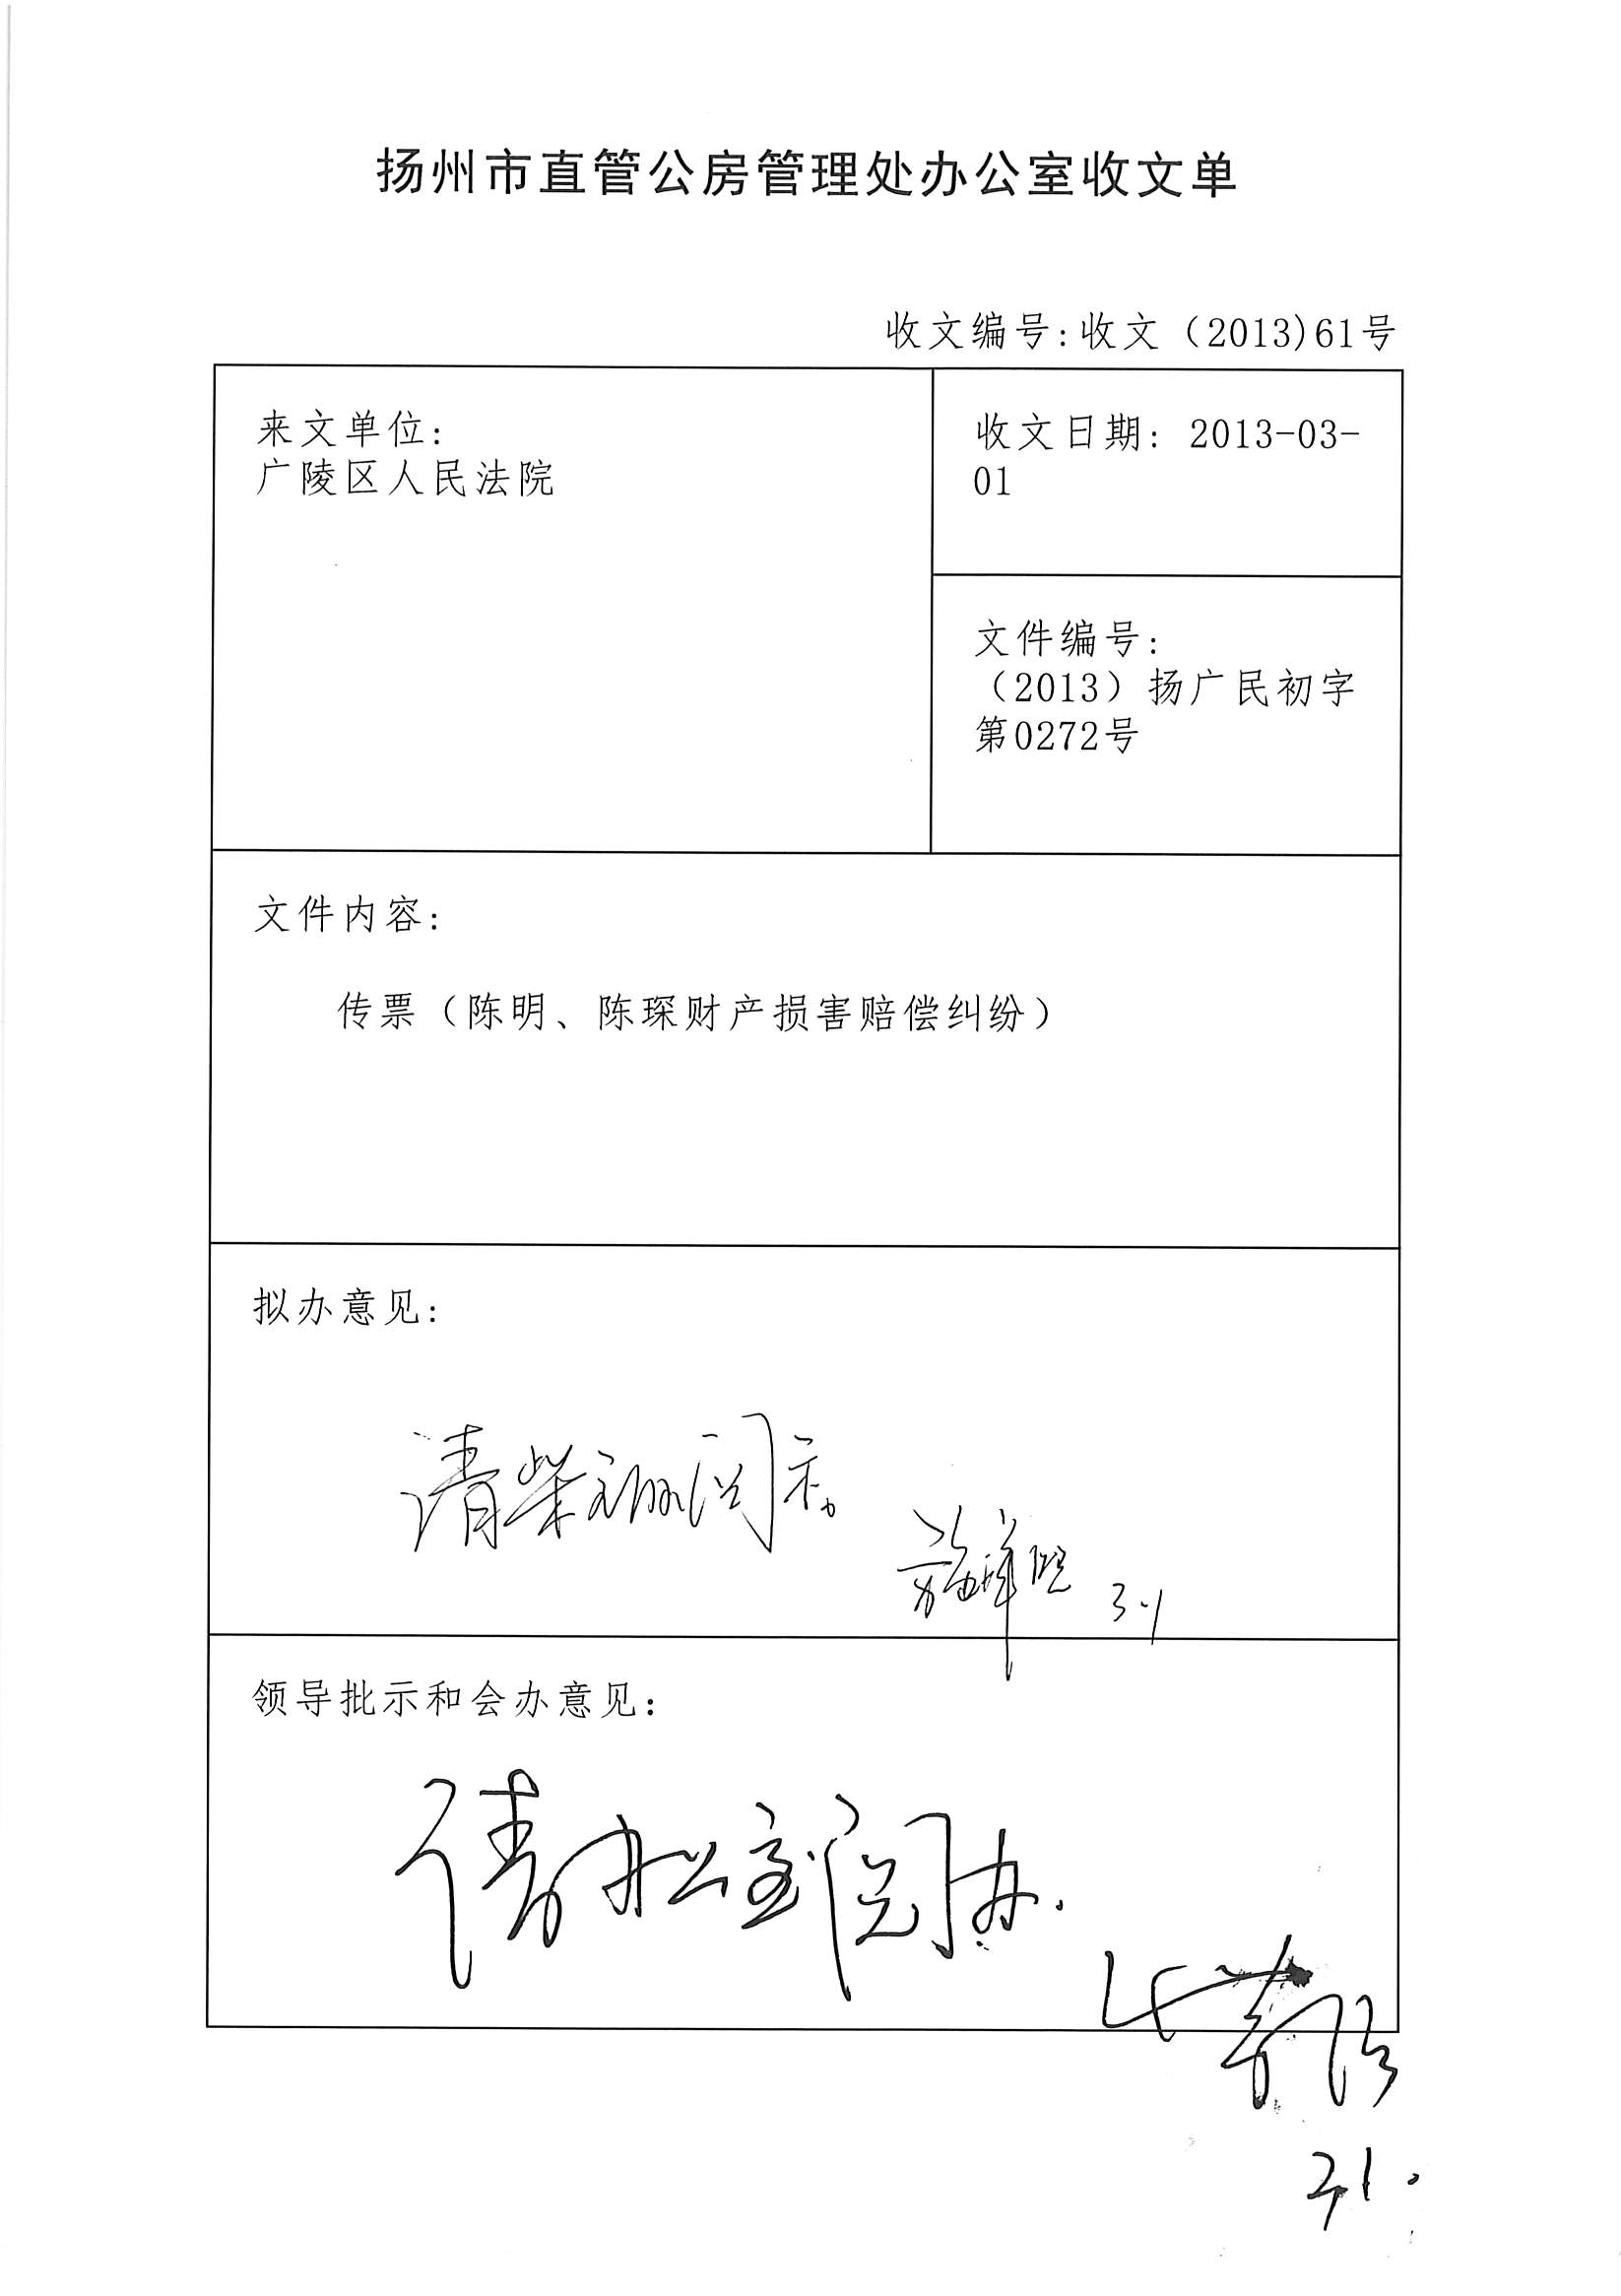 扬州市直管公房管理处办公室收文单
收文编号:收文（2013)61号
来文单位:
广陵区人民法院
收文日期: 2013-03-
01
文件编号:
（2013）扬广民初字
第0272号
文件内容:
传票（陈明、陈琛财产损害赔偿纠纷）
拟办意见:
请柴阅示。
3.1
领导批示和会办意见:
请办公室阅办.
3.1.